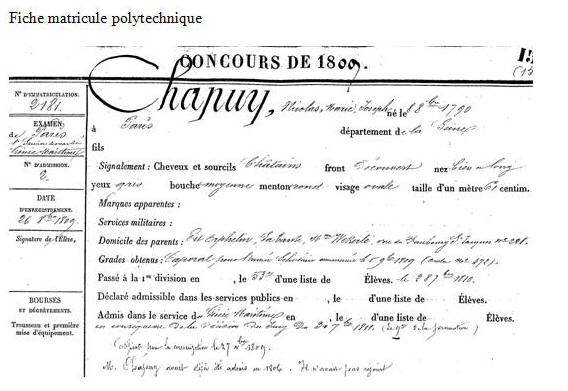 Fiche matricule polytechnique
CONCOURS DE 1809.
Chapuy, Nicolas, Marie, Joseph né le 8 8bre 1790
N° D'IMMATRICULATION.
2181.
à Paris département de la Seine
EXAMEN
de Paris
fils
Signalement : Cheveux et sourcils Châtains front Découvert nez
N° D'ADMISSION.
2.
yeux gris bouche moyenne menton rond visage ovale taille d'un mètre 61 centim.
Marques apparentes :
DATE
D'ENREGISTREMENT.
26 8bre 1809.
Services militaires :
Signature de l'Élève,
Domicile des parents : Est orphelin, rue du Faubourg St. Jacques
Grades obtenus : Caporal
Passé à la 1re division en , le 53e d'une liste de Élèves. le 28 7bre 1810.
Déclaré admissible dans les services publics en , le d'une liste de Élèves.
BOURSES
ET DÉGRÈVEMENTS.
Trousseau et première
mise d'équipement.
Admis dans le service du Génie Maritime en , le d'une liste de Élèves.
en conséquence de la décision du Jury du
M. Chapuy avait déjà été admis en Il n'avait pas rejoint